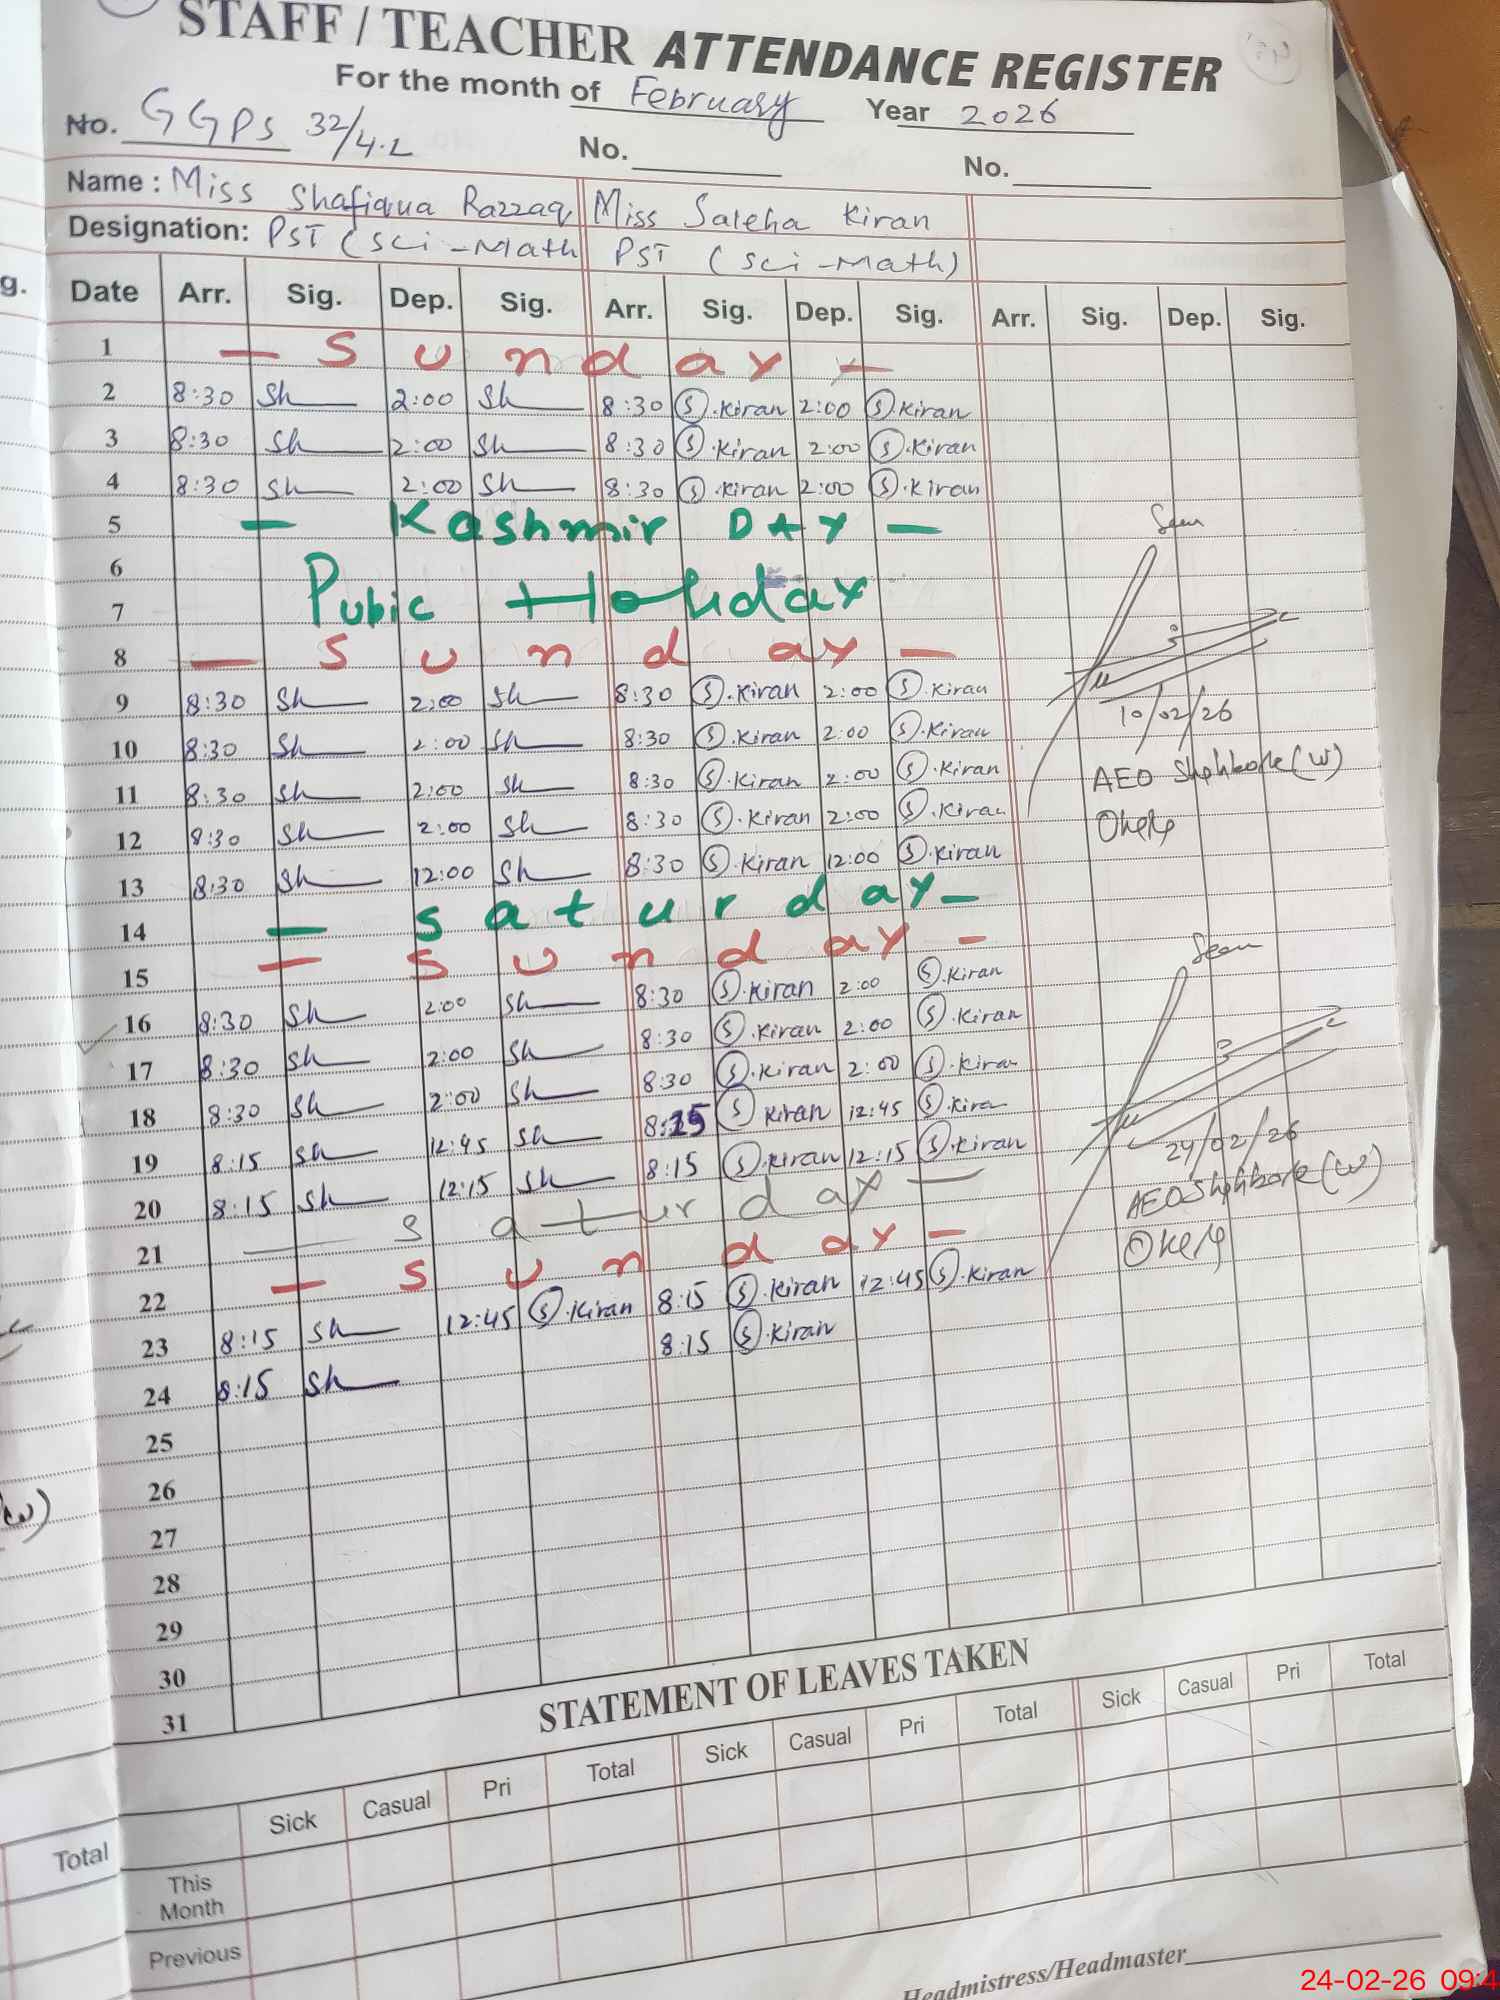 STAFF / TEACHER ATTENDANCE REGISTER
For the month of February Year 2026
No. GGPS 32/4.L No. No.
Name : Miss Shafiqua Razzaq Miss Saleha Kiran
Designation: PST (Sci-Math PST (Sci-Math)
g. Date Arr. Sig. Dep. Sig. Arr. Sig. Dep. Sig. Arr. Sig. Dep. Sig.
1 — Sunday —
2 8:30 Sh 2:00 Sh 8:30 (S).Kiran 2:00 (S).Kiran
3 8:30 Sh 2:00 Sh 8:30 (S).Kiran 2:00 (S).Kiran
4 8:30 Sh 2:00 Sh 8:30 (S).Kiran 2:00 (S).Kiran
5 — Kashmir DAY —
Seen
6
7 Pubic Holiday
8 — Sunday —
9 8:30 Sh 2:00 Sh 8:30 (S).Kiran 2:00 (S).Kiran
10/02/26
10 8:30 Sh 2:00 Sh 8:30 (S).Kiran 2:00 (S).Kiran
AEO (W)
11 8:30 Sh 2:00 Sh 8:30 (S).Kiran 2:00 (S).Kiran
12 8:30 Sh 2:00 Sh 8:30 (S).Kiran 2:00 (S).Kiran
13 8:30 Sh 12:00 Sh 8:30 (S).Kiran 12:00 (S).Kiran
14 — Saturday —
15 — Sunday —
Seen
16 8:30 Sh 2:00 Sh 8:30 (S).Kiran 2:00 (S).Kiran
17 8:30 Sh 2:00 Sh 8:30 (S).Kiran 2:00 (S).Kiran
18 8:30 Sh 2:00 Sh 8:30 (S).Kiran 2:00 (S).Kiran
19 8:15 Sh 12:45 Sh 8:15 (S) Kiran 12:45 (S).Kiran
20 8:15 Sh 12:15 Sh 8:15 (S).Kiran 12:15 (S).Kiran
24/02/26
21 — Saturday —
AEO (W)
22 — Sunday —
23 8:15 Sh 12:45 (S).Kiran 8:15 (S).Kiran 12:45 (S).Kiran
24 8:15 Sh 8:15 (S).Kiran
25
26
(W)
27
28
29
30
31
STATEMENT OF LEAVES TAKEN
Sick Casual Pri Total Sick Casual Pri Total Sick Casual Pri Total
Total
This Month
Previous
Headmistress/Headmaster
24-02-26 09:4